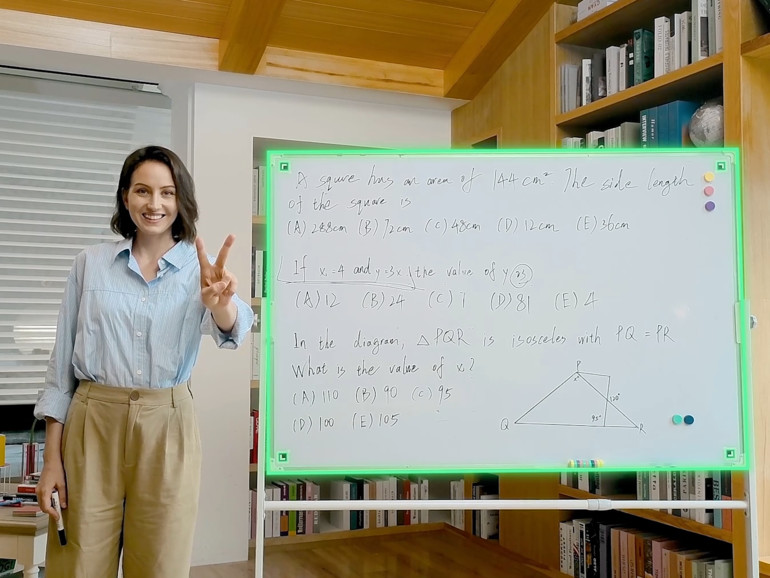 A square has an area of 144cm² The side length
of the square is
(A) 288cm (B) 72cm (C) 48cm (D) 12cm (E) 36cm
If x=4 and y=3x, the value of y is
(A) 12 (B) 24 (C) 7 (D) 81 (E) 4
In the diagram, △PQR is isosceles with PQ = PR
What is the value of x?
(A) 110 (B) 90 (C) 95
(D) 100 (E) 105
P
x°
120°
Q
45°
R